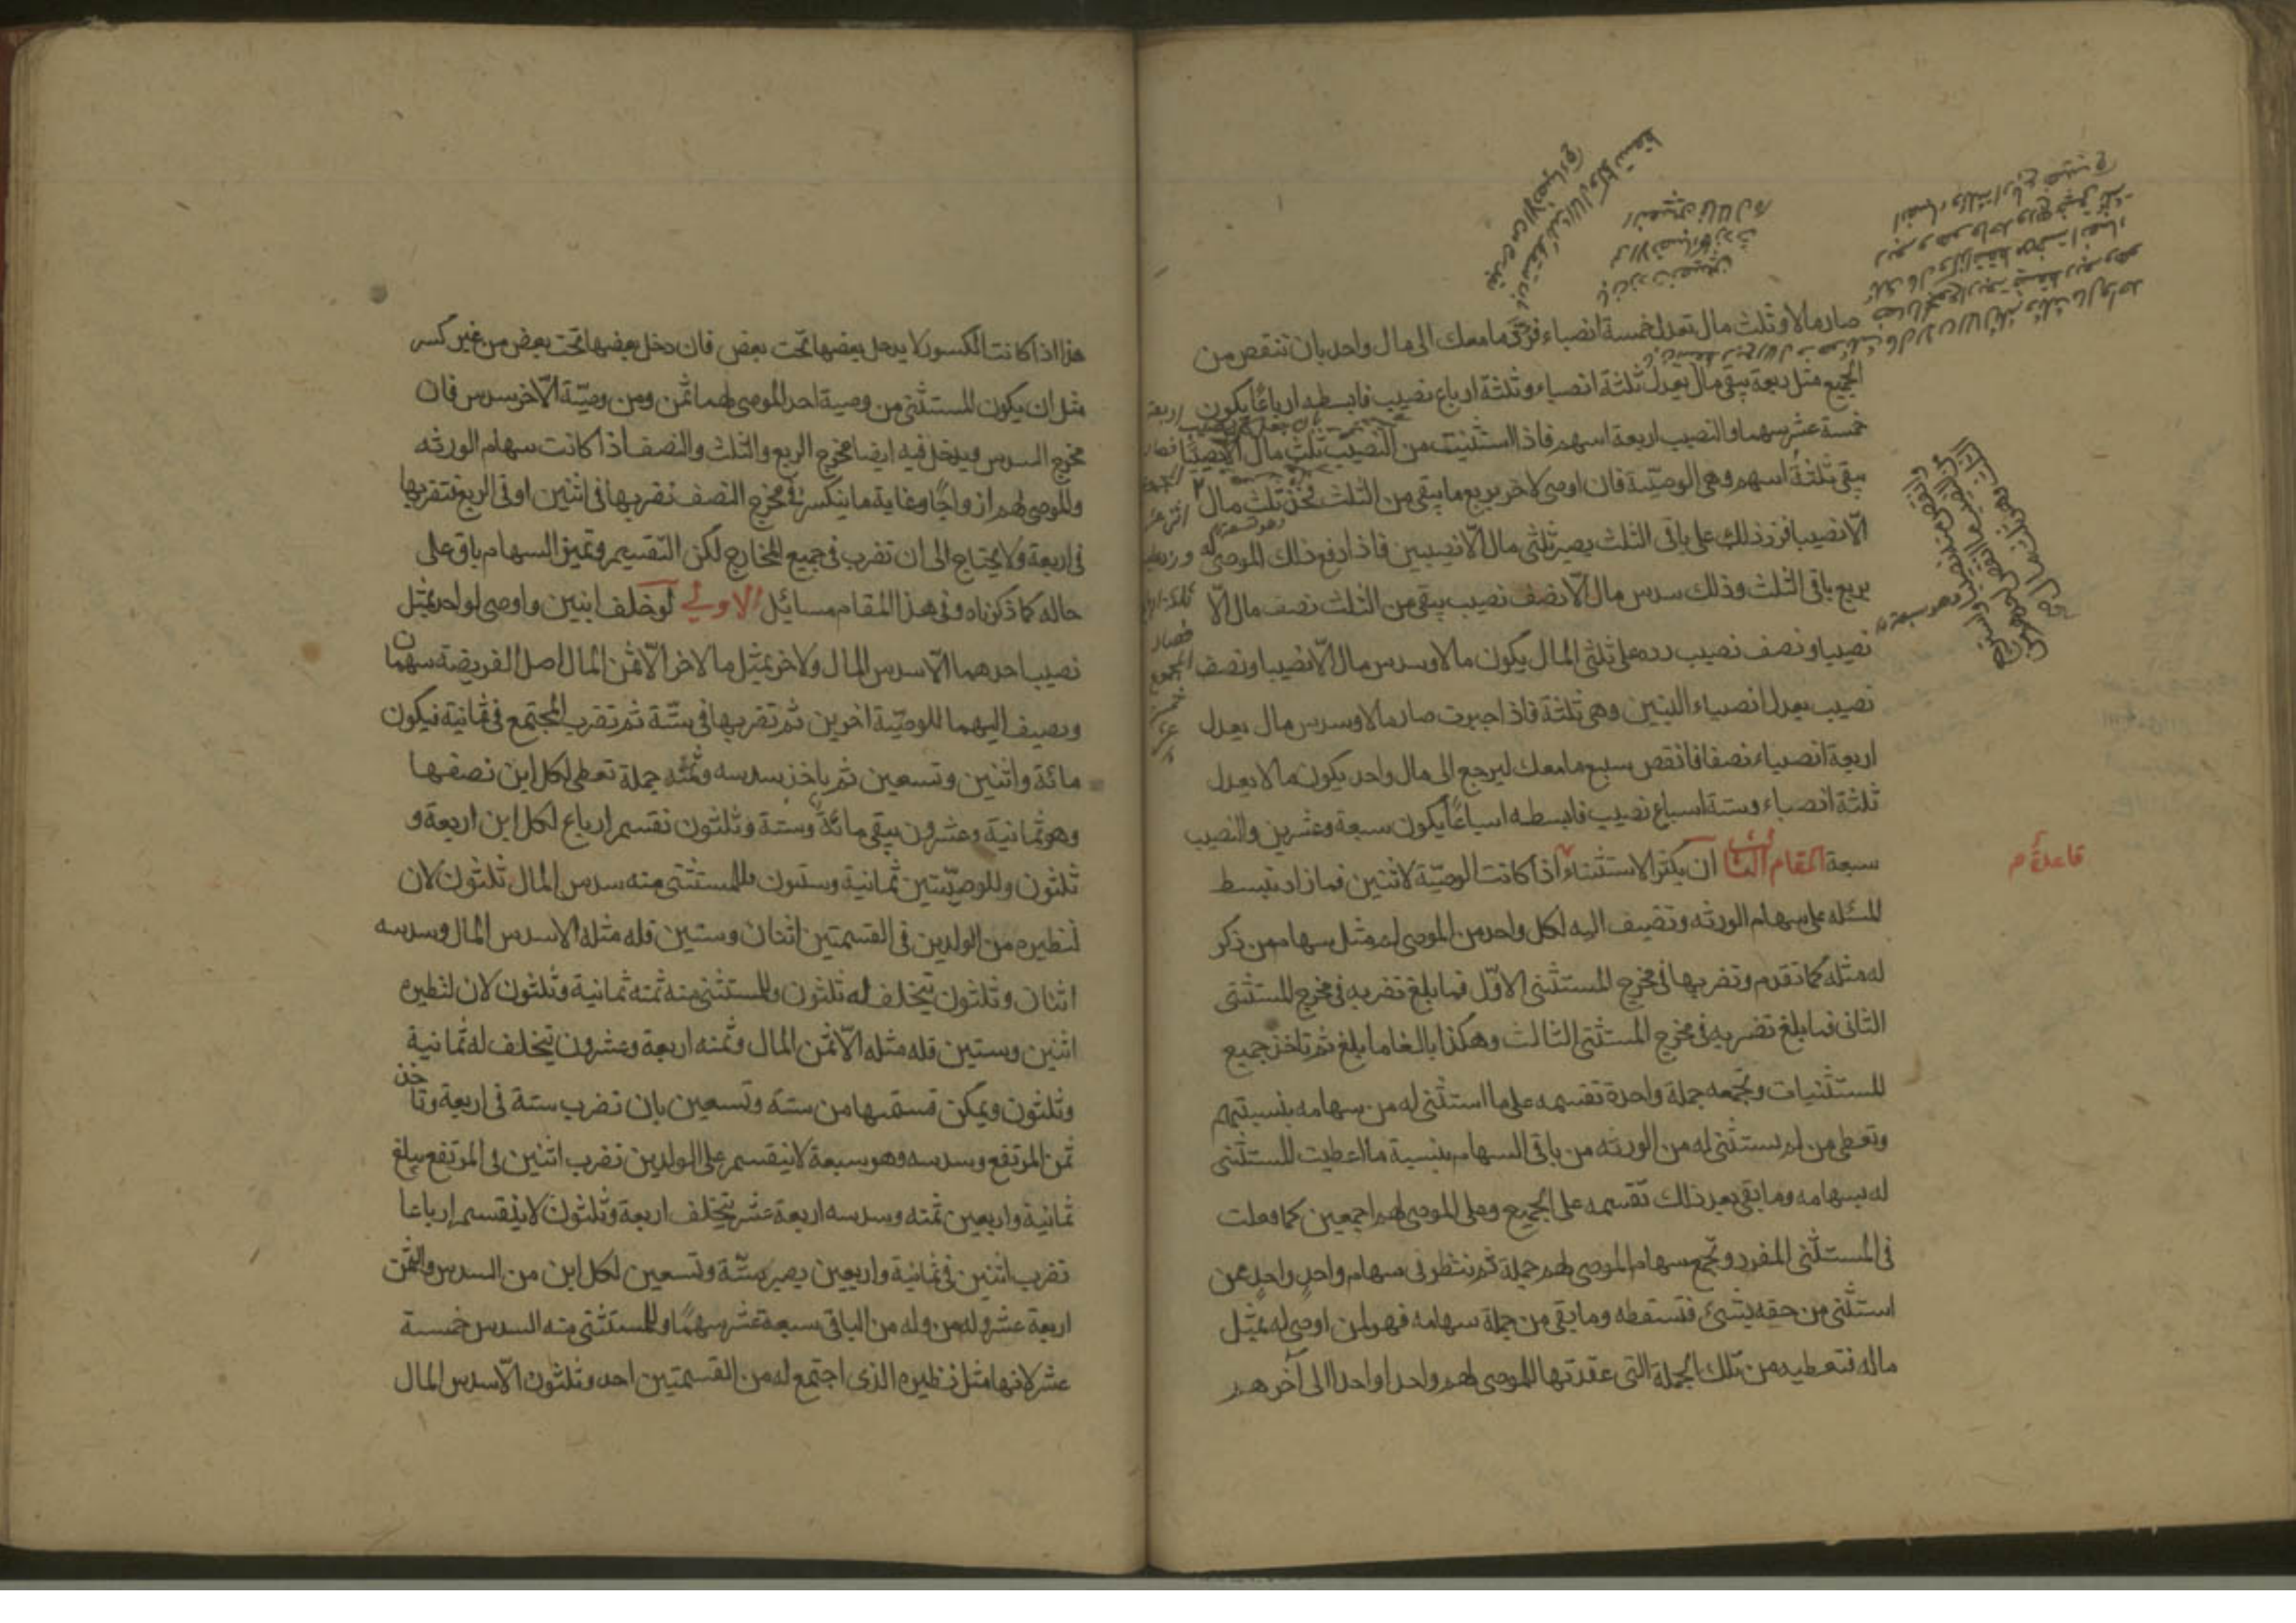 صار مالا وثلث مال تعدل خمسة انصباء فرد ما معك الى مال واحد بان تنقص من
الجميع مثل ربعه يبقى مال يعدل ثلثة انصباء وثلثة ارباع نصيب فابسطه ارباعًا يكون
خمسة عشر سهما والنصيب اربعة اسهم فاذا استثنيت من النصيب ثلث مال الا نصيبا
يبقى ثلثة اسهم وهى الوصيّة فان اوصى لاخر بربع ما يبقى من الثلث فخذ ثلث مال
الّا نصيبا فزد ذلك على باقى الثلث يصير ثلثى مال الّا نصيبين فاذا دفع ذلك الموصى له
بربع باقى الثلث وذلك سدس مال الّا نصف نصيب يبقى من الثلث نصف مال الّا
نصيبا ونصف نصيب رده على ثلثى المال يكون مالا وسدس مال الّا نصيبا ونصف
نصيب يعدل انصباء البنين وهى ثلثة فاذا جبرت صار مالا وسدس مال يعدل
اربعة انصباء نصفا فانقص سبع ما معك ليرجع الى مال واحد يكون مالا يعدل
ثلثة انصباء وستة اسباع نصيب فابسطه اسباعًا يكون سبعة وعشرين والنصيب
سبعة المقام الثانى ان يكثر الاستثناء اذا كانت الوصيّة لاثنين فما زاد تبسط
المسئله على سهام الورثه وتضيف اليه لكل واحد من الموصى له مثل سهام من ذكر
له مثله كما تقدم وتضربها فى مخرج المستثنى الاوّل فما بلغ تضربه فى مخرج المستثنى
الثانى فما بلغ تضربه فى مخرج المستثنى الثالث وهكذا بالغا ما بلغ ثم تاخذ جميع
المستثنيات وتجمعه جملة واحدة تقسمه على ما استثنى له من سهامه بنسبتهم
وتعطى من لم يستثنى له من الورثه من باقى السهام بنسبة ما اعطيت المستثنى
له بسهامه وما بقى بعد ذلك تقسمه على الجميع وعلى الموصى لهم اجمعين كما فعلت
فى المستثنى المفرد وتجمع سهام الموصى لهم جملة ثم ننظر فى سهام واحدٍ واحدٍ ممن
استثنى من حقه بشئ فتسقطه وما بقى من جملة سهامه فهو لمن اوصى له بمثل
ماله فتعطيه من تلك الجملة التى عقدتها للموصى لهم واحدا واحدا الى آخرهم
قاعدة م
هذا اذا كانت الكسور لا يدخل بعضها تحت بعض فان دخل بعضها تحت بعض من غير كسر
مثل ان يكون المستثنى من وصية احد الموصى لهما ثمن ومن وصيّة الّاخر سدس فان
مخرج السدس ويدخل فيه ايضا مخرج الربع والثلث والنصف اذا كانت سهام الورثه
والموصى لهم ازواجًا وغاية ما ينكسر فى مخرج النصف تضربها فى اثنين او فى الربع فتضربها
فى اربعة ولا يحتاج الى ان تضرب فى جميع المخارج لكن التقسيم وتميز السهام باق على
حاله كما ذكرناه وفى هذا المقام مسائل الاولى لو خلف ابنين واوصى لواحد بمثل
نصيب احدهما الّا سدس المال ولاخر بمثل ما لاخر الّا ثمن المال اصل الفريضة سهمان
ويضيف اليهما للوصيّة اخرين ثم تضربها فى ستّة ثم تضرب المجتمع فى ثمانية فيكون
مائة واثنين وتسعين ثم ياخذ سدسه وثمنه جملة تعطى لكل ابن نصفها
وهو ثمانية وعشرون يبقى مائة وستة وثلثون نقسم ارباع لكل ابن اربعة و
ثلثون وللوصيّتين ثمانية وستون فللمستثنى منه سدس المال ثلثون لان
لنظيره من الولدين فى القسمتين اثنان وستين فله مثله الا سدس المال وسدسه
اثنان وثلثون يتخلف له ثلثون وللمستثنى منه ثمنه ثمانية وثلثون لان لنظيره
اثنين وستين فله مثله الّا ثمن المال وثمنه اربعة وعشرون يتخلف له ثمانية
وثلثون ويمكن قسمتها من ستة وتسعين بان تضرب ستة فى اربعة وتاخذ
ثمن المرتفع وسدسه وهو سبعة لا ينقسم على الولدين تضرب اثنين فى المرتفع يبلغ
ثمانية واربعين ثمنه وسدسه اربعة عشر يتخلف اربعة وثلثون لا ينقسم ارباعا
تضرب اثنين فى ثمانية واربعين يصير ستّة وتسعين لكل ابن من السدس والثمن
اربعة عشر وله من وله من الباقى سبعة عشر سهمًا وللمستثنى منه السدس خمسة
عشر لانها مثل نظيره الذى اجتمع له من القسمتين احد وثلثون الّا سدس المال